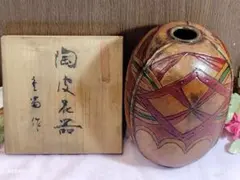 陶皮花器
作